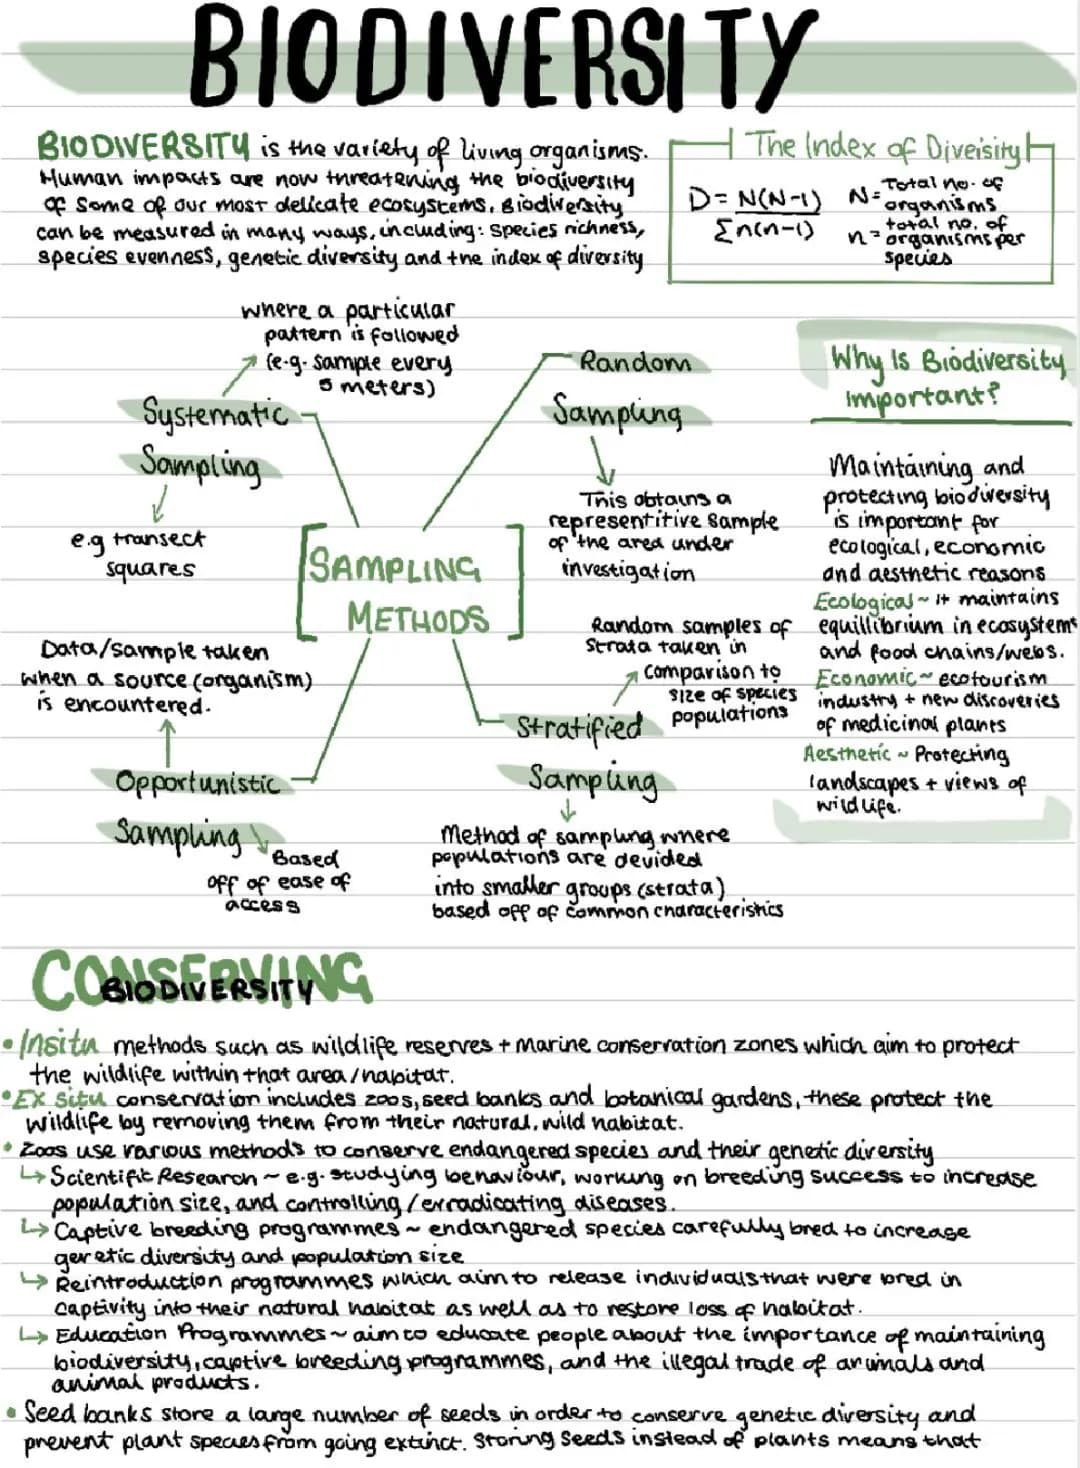 BIODIVERSITY
BIODIVERSITY is the variety of living organisms.
Human impacts are now threatening the biodiversity
of some of our most delicate ecosystems. Biodiversity
can be measured in many ways, including: species richness,
species evenness, genetic diversity and the index of diversity
The Index of Diversity
D = N(N-1)
Σn(n-1)
N = Total no. of
organisms
n = total no. of
organisms per
species
where a particular
pattern is followed
(e.g. sample every
5 meters)
Systematic
Sampling
e.g transect
squares
Random
Sampling
This obtains a
representitive sample
of the area under
investigation
SAMPLING
METHODS
Data/sample taken
when a source (organism)
is encountered.
Opportunistic
Sampling
Based
off of ease of
access
Random samples of
strata taken in
comparison to
size of species
populations
Stratified
Sampling
Method of sampling where
populations are devided
into smaller groups (strata)
based off of common characteristics
Why Is Biodiversity
Important?
Maintaining and
protecting biodiversity
is important for
ecological, economic
and aesthetic reasons
Ecological ~ It maintains
equillibrium in ecosystems
and food chains/webs.
Economic ~ ecotourism
industry + new discoveries
of medicinal plants
Aesthetic ~ Protecting
landscapes + views of
wildlife.
CONSERVING
BIODIVERSITY
• Insitu methods such as wildlife reserves + marine conservation zones which aim to protect
the wildlife within that area/habitat.
• Ex situ conservation includes zoos, seed banks and botanical gardens, these protect the
wildlife by removing them from their natural, wild habitat.
• Zoos use various methods to conserve endangered species and their genetic diversity
↳ Scientific Research ~ e.g. studying behaviour, working on breeding success to increase
population size, and controlling/erradicating diseases.
↳ Captive breeding programmes ~ endangered species carefully bred to increase
genetic diversity and population size
↳ Reintroduction programmes which aim to release individuals that were bred in
captivity into their natural habitat as well as to restore loss of habitat.
↳ Education Programmes ~ aim to educate people about the importance of maintaining
biodiversity, captive breeding programmes, and the illegal trade of animals and
animal products.
• Seed banks store a large number of seeds in order to conserve genetic diversity and
prevent plant species from going extinct. Storing seeds instead of plants means that